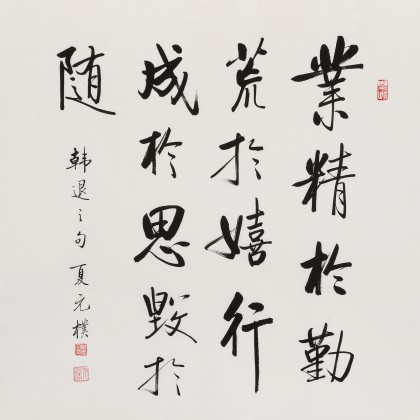 業精於勤
荒於嬉行
成於思毀於
隨
韩退之句 夏元樸